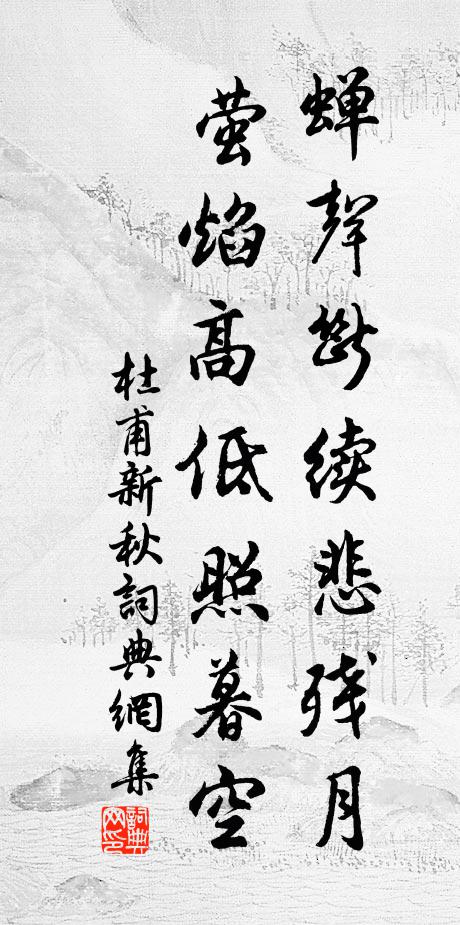 蝉聲斷續悲残月
萤焰高低照暮空
杜甫新秋詞典網集
詞典网印